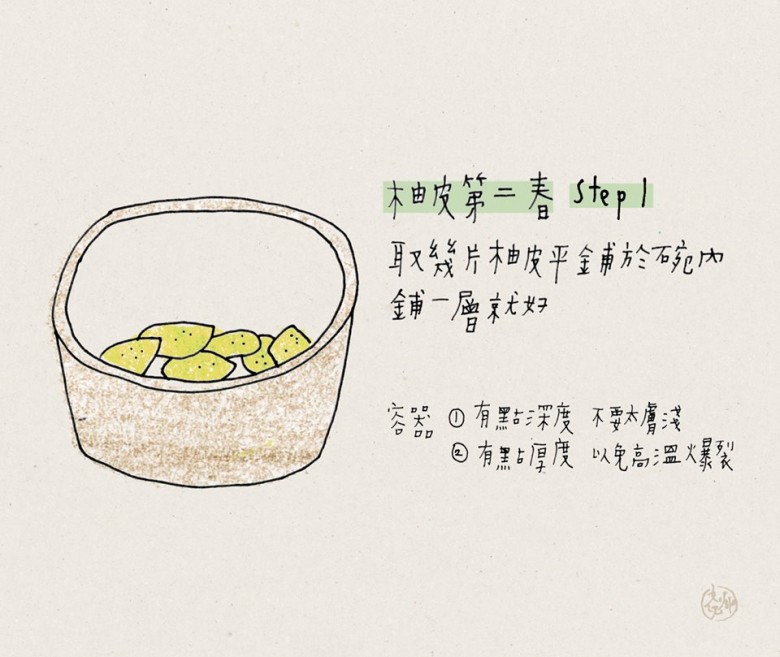 柚皮第二春 Step 1
取幾片柚皮平鋪於碗內
鋪一層就好
容器 ① 有點深度 不要太膚淺
② 有點厚度 以免高溫爆裂